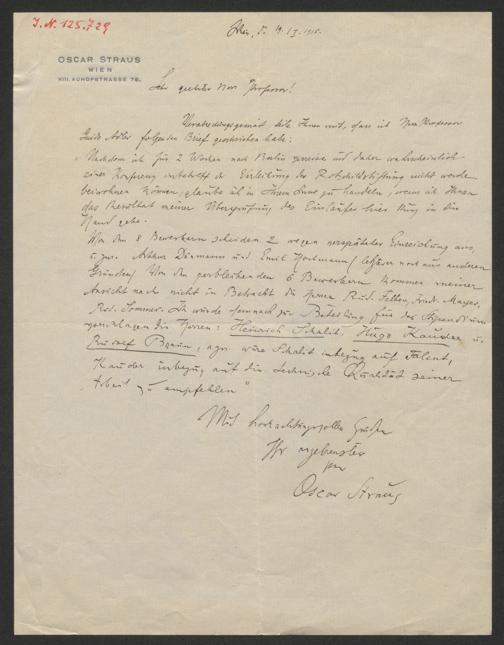 I.N. 125.729
OSCAR STRAUS
WIEN
XIII. AUHOFSTRASSE 78.
Wien, d. 4. I. 1915.
Sehr geehrter Herr Professor!
Verabredungsgemäß teile Ihnen mit, dass ich Herrn Professor
Guido Adler folgenden Brief geschrieben habe:
„Nachdem ich für 2 Wochen nach Berlin verreise und daher wahrscheinlich
einer Konferenz betreffs der Einleitung der Rothschildstiftung nicht werde
beiwohnen können, glaube ich in Ihrem Sinne zu handeln, wenn ich Ihnen
das Resultat meiner Überprüfung des Einlaufes hier kurz in die
Hand gebe.
Von den 8 Bewerbern scheiden 2 wegen verspäteter Einreichung aus,
u. zw. Arthur und Emil (letzterer noch aus anderen
Gründen) Von den verbleibenden 6 Bewerbern kommen meiner
Ansicht nach nicht in Betracht die Herren Rud. Felber, Mayer,
Rob. Sommer. Ich würde somit zur Beteilung für das Stipendium
vorschlagen die Herren: Heinrich Schalit, Hugo Kauder u.
Rudolf Braun, u. zw. wäre Schalit inbezug auf Talent,
Kauder inbezug auf die technische Qualität seiner
Arbeit zu empfehlen"
Mit hochachtungsvollen Grüßen
Ihr ergebenster
Oscar Straus